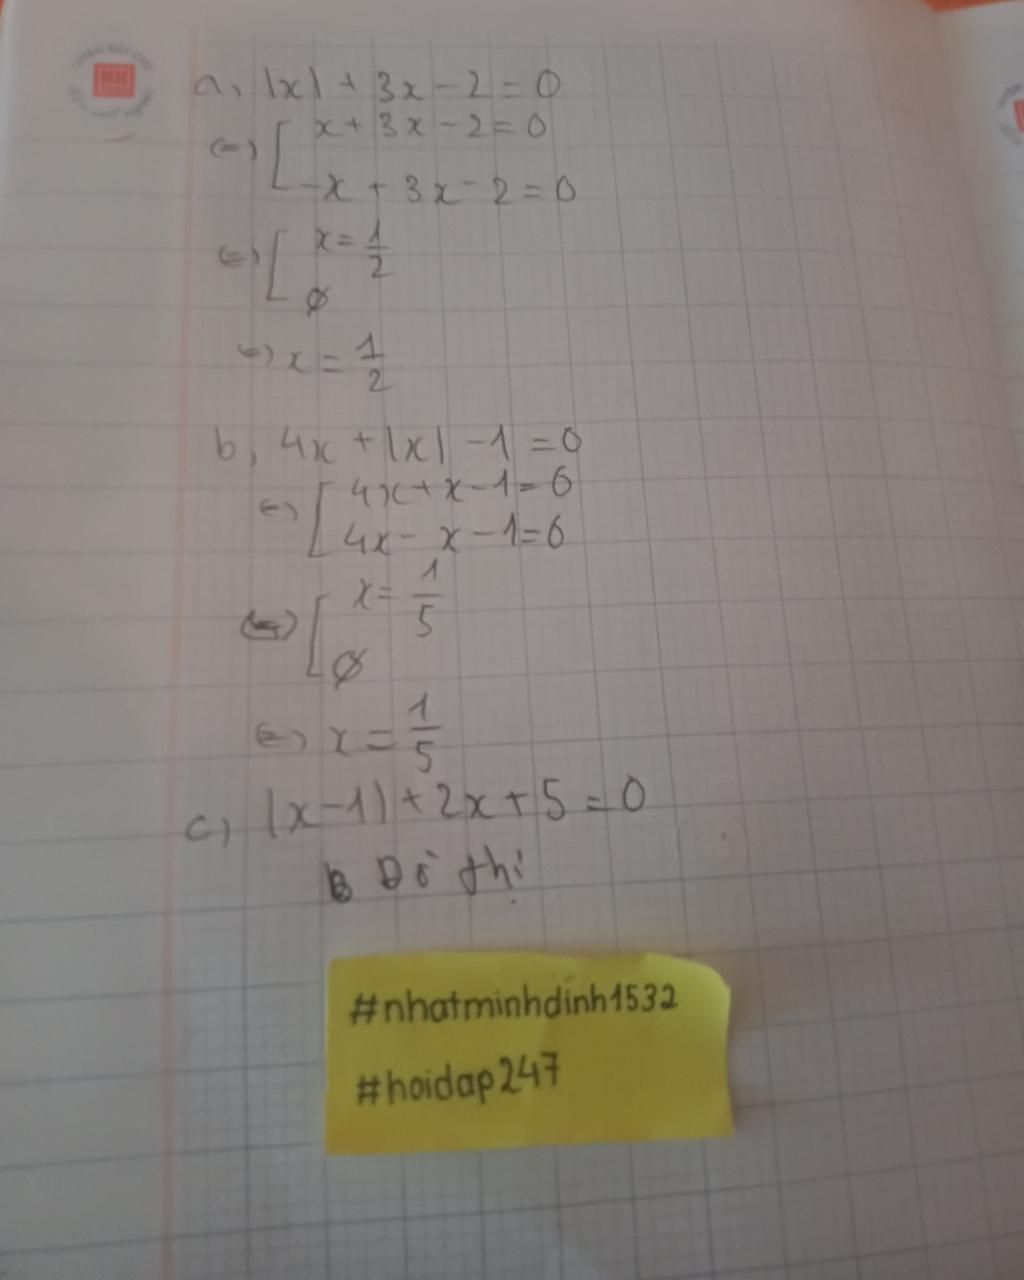 a, |x| + 3x - 2 = 0
(=) [ x + 3x - 2 = 0
-x + 3x - 2 = 0
(=) [ x = 1/2
∅
(=) x = 1/2
b, 4x + |x| - 1 = 0
(=) [ 4x + x - 1 = 0
4x - x - 1 = 0
(=) [ x = 1/5
∅
(=) x = 1/5
c, |x - 1| + 2x + 5 = 0
Đồ thị
#nhatminhdinh1532
#hoidap247